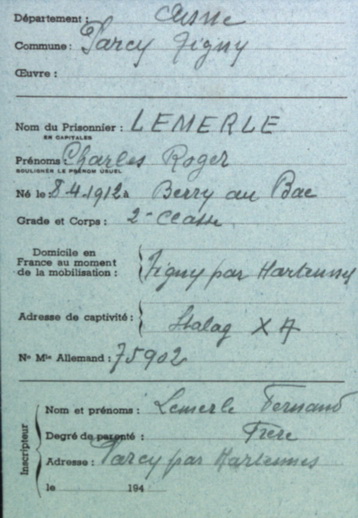 Département : Aisne
Commune : Parcy Tigny
Œuvre :
Nom du Prisonnier : LEMERLE
EN CAPITALES
Prénoms : Charles Roger
SOULIGNER LE PRÉNOM USUEL
Né le 8.4.1912 à Berry au Bac
Grade et Corps : 2e Classe
Domicile en
France au moment
de la mobilisation : Tigny par Hartennes
Adresse de captivité : Stalag X A
No Mle Allemand : 75902
Inscripteur
Nom et prénoms : Lemerle Fernand
Degré de parenté : Frère
Adresse : Parcy par Hartennes
le 194